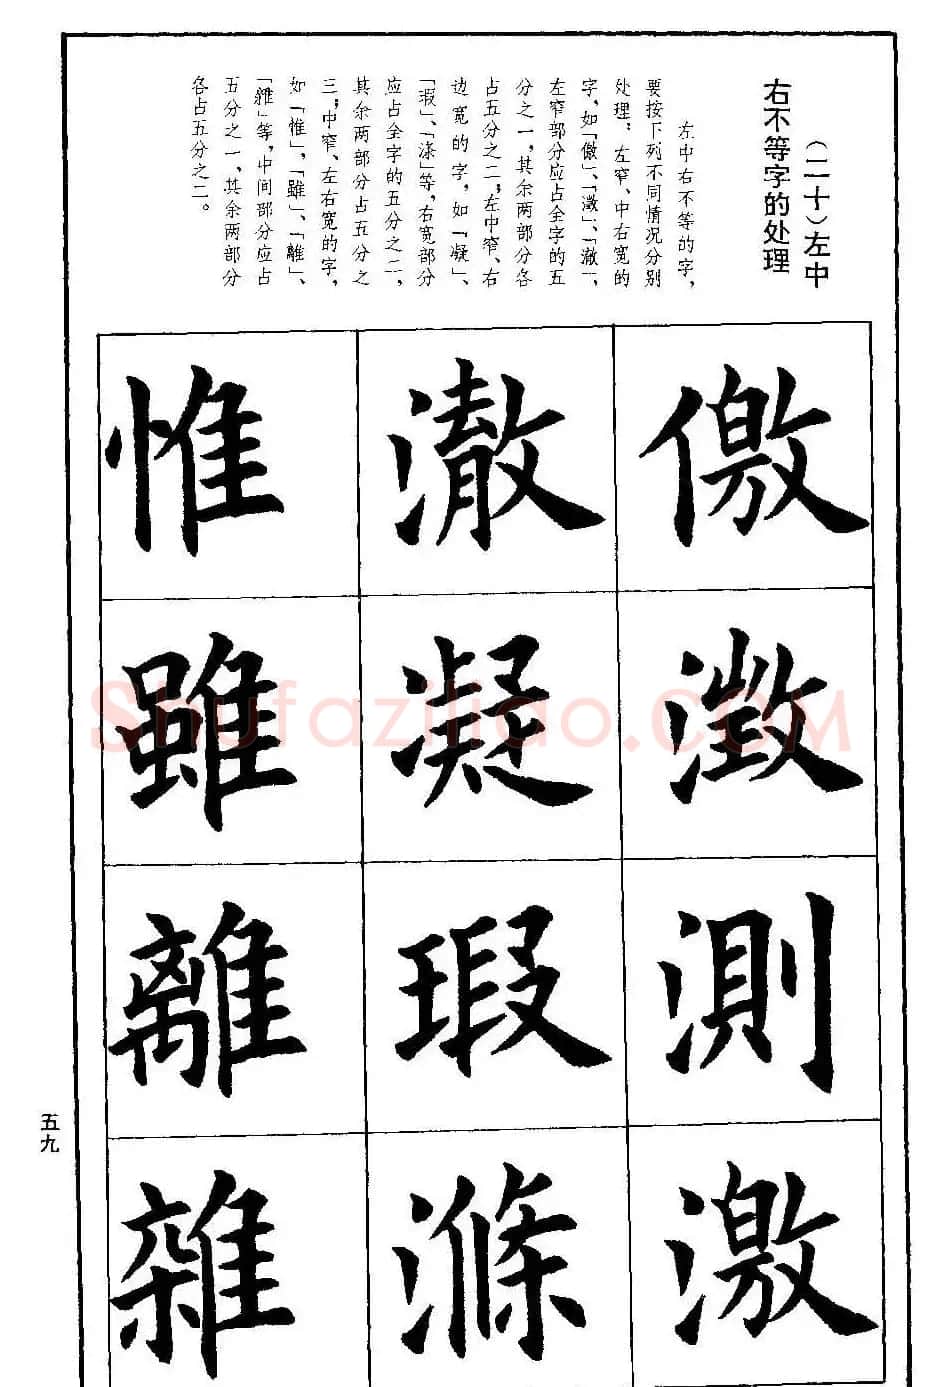 （二十）左中
右不等字的处理
左中右不等的字，
要按下列不同情况分别
处理：左窄、中右宽的
字、如「儌」、「澂」、「澈」，
左窄部分应占全字的五
分之一，其余两部分各
占五分之二；左中窄、右
边宽的字，如「凝」、
「瑕」、「涤」等，右宽部分
应占全字的五分之二，
其余两部分占五分之
三；中窄、左右宽的字，
如「惟」，「雖」、「離」、
「雜」等，中间部分应占
五分之一、其余两部分
各占五分之二。
儌
澂
測
激
澈
凝
瑕
滌
惟
雖
離
雜
五九
Shufaziliao.com